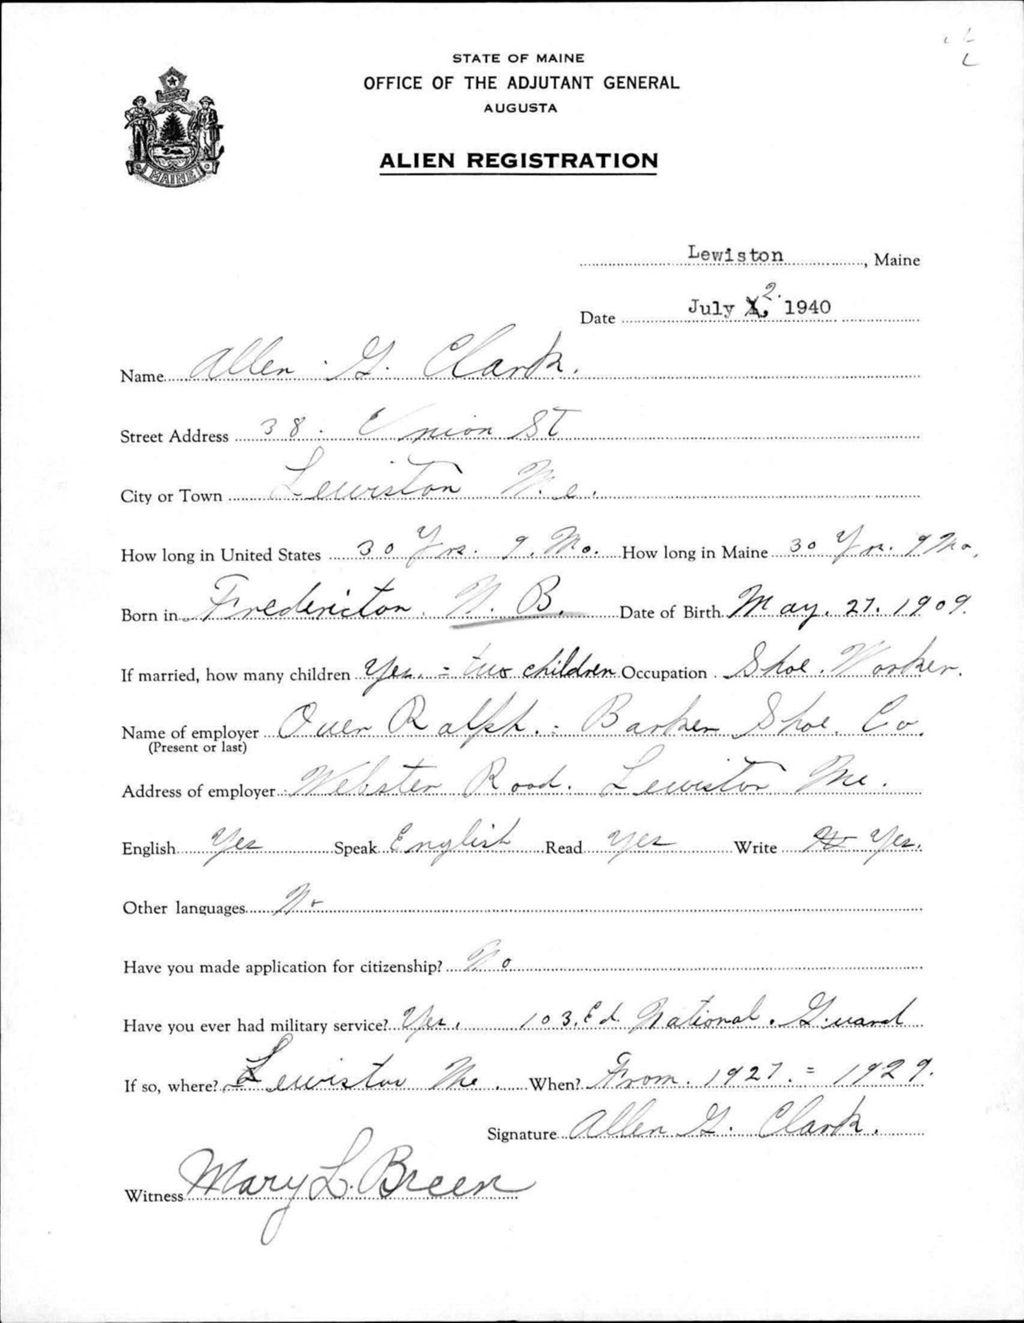 STATE OF MAINE
OFFICE OF THE ADJUTANT GENERAL
AUGUSTA
ALIEN REGISTRATION
MAINE
Lewiston, Maine
Date July 2. 1940
Name Allen G. Clark.
Street Address 38. Union St
City or Town Lewiston Me.
How long in United States 30 Yrs. 9. Mo. How long in Maine 30 Yrs. 9 Mo.
Born in Fredericton. N. B. Date of Birth May. 27. 1909.
If married, how many children Yes. = two children Occupation Shoe. Worker.
Name of employer Ouen Ralph. = Barker Shoe. Co.
(Present or last)
Address of employer Webster Road. Lewiston Me.
English Yes Speak English Read Yes Write Yes.
Other languages No
Have you made application for citizenship? No
Have you ever had military service? Yes. 103. National. Guard
If so, where? Lewiston Me. When? From. 1927. = 1929.
Signature Allen G. Clark.
Witness Mary L. Breen